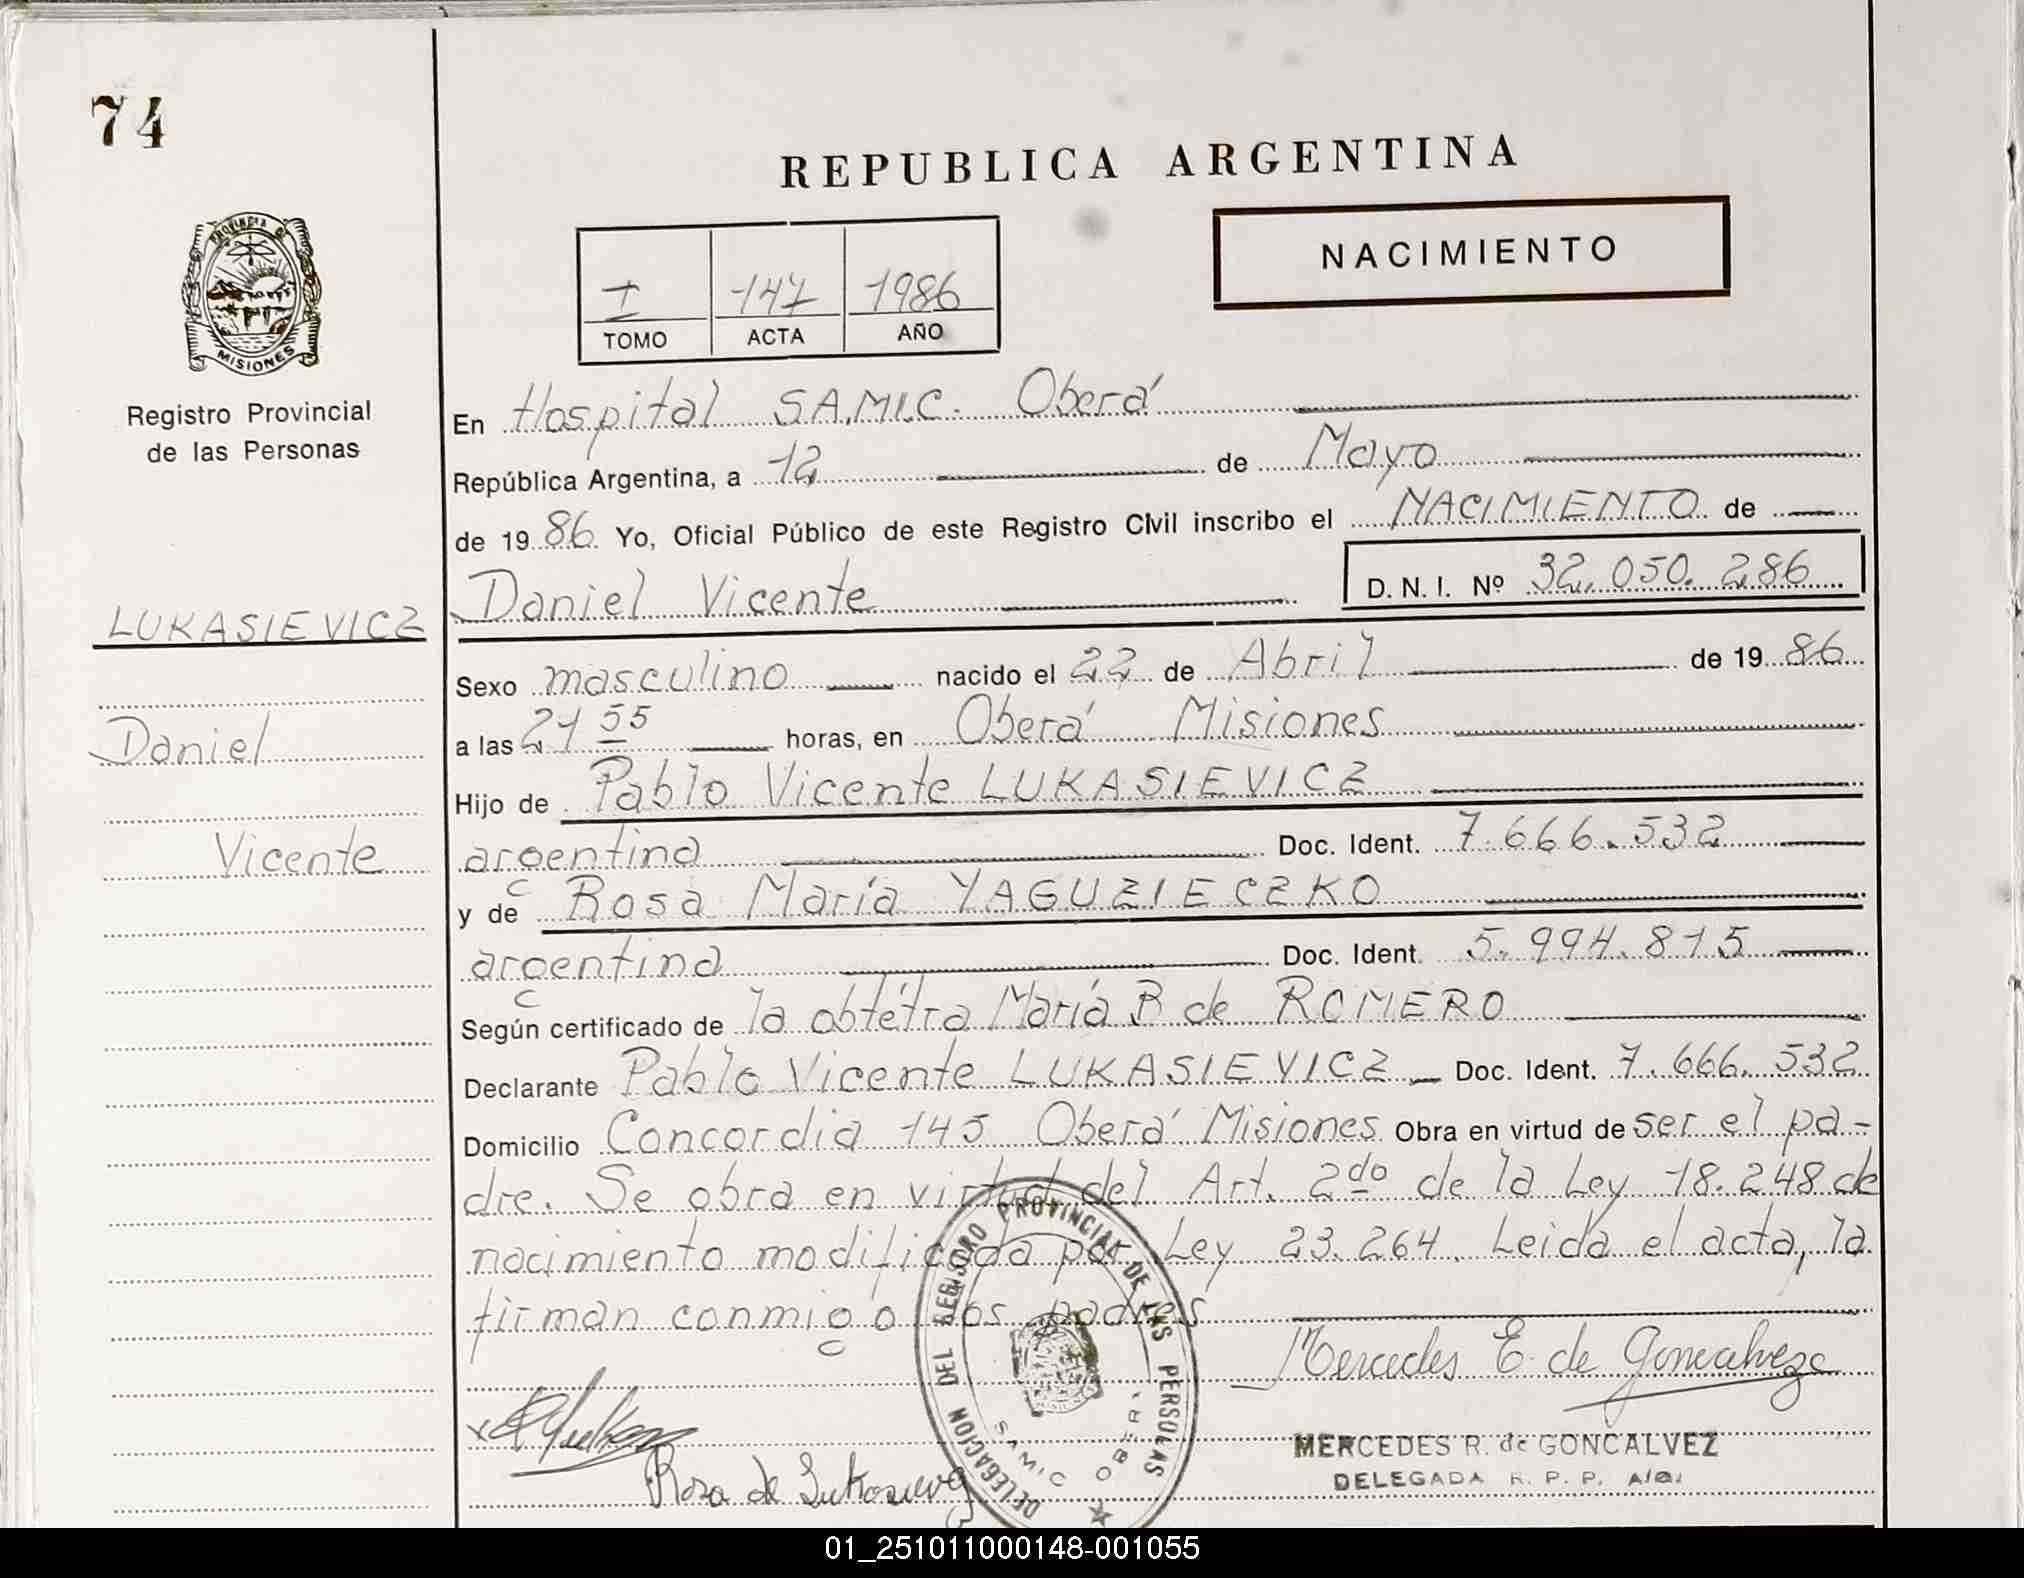 74
REPUBLICA ARGENTINA
NACIMIENTO
I 147 1986
TOMO ACTA AÑO
PROVINCIA DE
MISIONES
Registro Provincial
de las Personas
LUKASIEVICZ
Daniel
Vicente
En Hospital S.A.M.I.C. Oberá
República Argentina, a 12 de Mayo
de 1986 Yo, Oficial Público de este Registro Civil inscribo el NACIMIENTO de
Daniel Vicente D. N. I. Nº 32.050.286
Sexo masculino nacido el 22 de Abril de 1986
a las 21 55 horas, en Oberá Misiones
Hijo de Pablo Vicente LUKASIEVICZ
argentina Doc. Ident. 7.666.532
y de Rosa María YAGUZIECZKO
argentina Doc. Ident. 5.994.815
Según certificado de la obtétra María B de ROMERO
Declarante Pablo Vicente LUKASIEVICZ Doc. Ident. 7.666.532
Domicilio Concordia 145 Oberá Misiones Obra en virtud de ser el pa-
dre. Se obra en virtud del Art. 2do de la Ley 18.248 de
nacimiento modificada por Ley 23.264. Leida el acta, la
firman conmigo los padres
Mercedes E. de Goncalvez
Rosa de
MERCEDES R. de GONCALVEZ
DELEGADA R. P. P.
DELEGACION DEL REGISTRO PROVINCIAL DE LAS PERSONAS
SAMIC OBERA
01_251011000148-001055